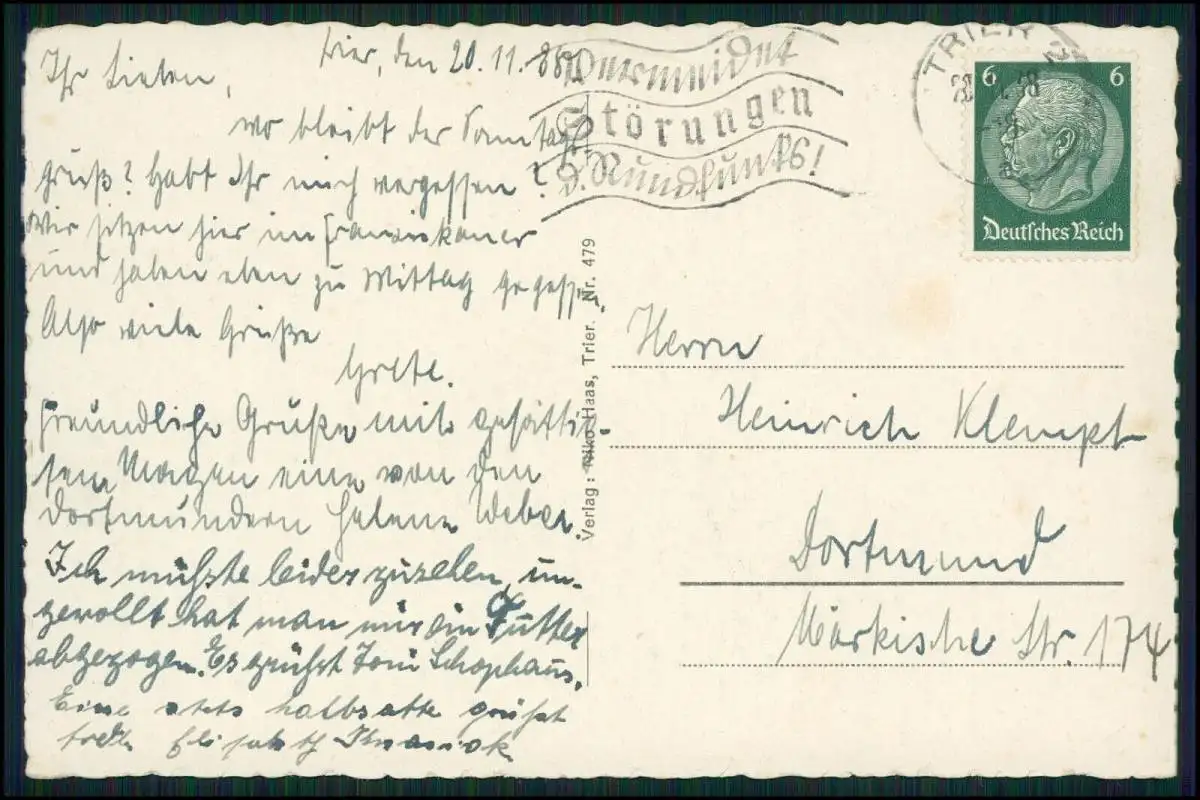 Trier, den 20.11.38.
Ihr Lieben,
wo bleibt der Sonntags-
gruß? Habt Ihr mich vergessen?
Wir sitzen hier im Franziskaner
und haben eben zu Mittag gegessen.
Also viele Grüße
Grete.
Freundliche Grüße mit gesättig-
tem Magen eine von den
Dortmundern Helene Weber.
Ich mußte leider zusehen, un-
gewollt hat man mir ein Futter
abgezogen. Es grüßt Toni Schophaus.
Eine stets halbsatte grüßt
Elisabeth
Vermeidet
Störungen
d. Rundfunks!
TRIER 2
20.11.38
6 6
Deutsches Reich
Verlag: Haas, Trier. Nr. 479
Herrn
Heinrich Klempt
Dortmund
Märkische Str. 174